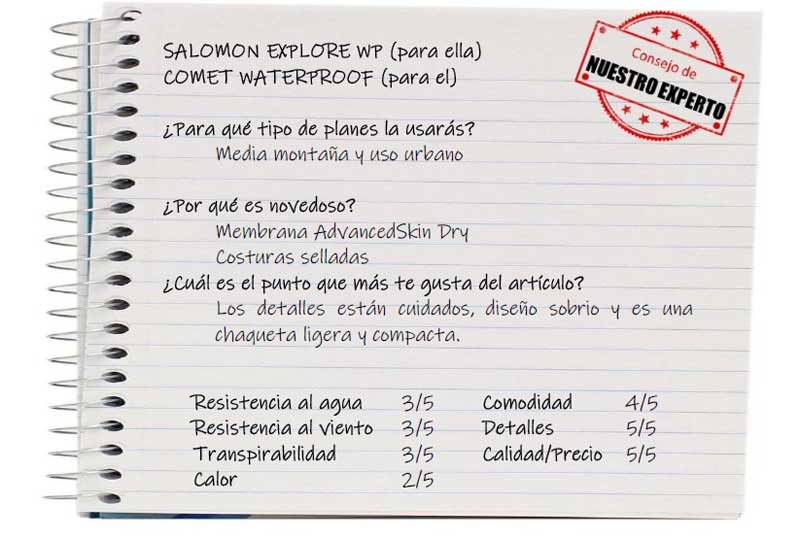 SALOMON EXPLORE WP (para ella)
COMET WATERPROOF (para el)
Consejo de
NUESTRO EXPERTO
¿Para qué tipo de planes la usarás?
Media montaña y uso urbano
¿Por qué es novedoso?
Membrana AdvancedSkin Dry
Costuras selladas
¿Cuál es el punto que más te gusta del artículo?
Los detalles están cuidados, diseño sobrio y es una
chaqueta ligera y compacta.
Resistencia al agua 3/5 Comodidad 4/5
Resistencia al viento 3/5 Detalles 5/5
Transpirabilidad 3/5 Calidad/Precio 5/5
Calor 2/5